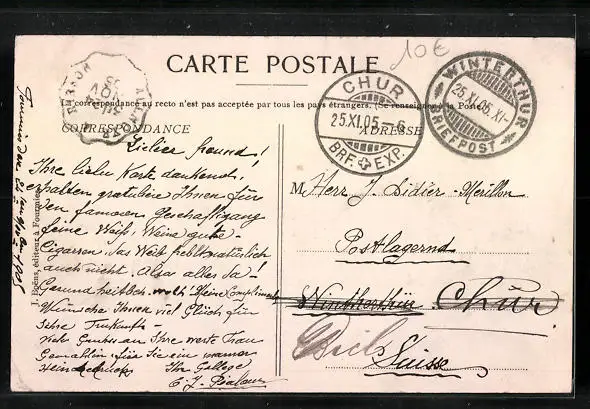 10€
CARTE POSTALE
La correspondance au recto n'est pas acceptée par tous les pays étrangers. (Se renseigner à la Poste)
CORRESPONDANCE
ADRESSE
CHUR
25.XI.05-6
BRF. EXP.
WINTERTHUR
25.XI.05.XI-
BRIEFPOST
Lieber freund!
Ihre liebe Karte dankend
erhalten gratuliere Ihnen für
den famosen Geschäftsgang
feine Weib, Weine gute
Cigarren. das Weib fehlt natürlich
auch nicht. Also alles da -
Gesundheitlich wohl! Meine Compliment
Wünsche Ihnen viel Glück für
Ihre Zukunft -
viele Gruhs an Ihre werte Frau
Gemahlin für Sie ein warmer
Händedruck Ihr College
J. Boëns, éditeur à Fourmies
M. Herr J. Didier-Merillon
Postlagernd
Winthertür Chur
Biel
Suisse